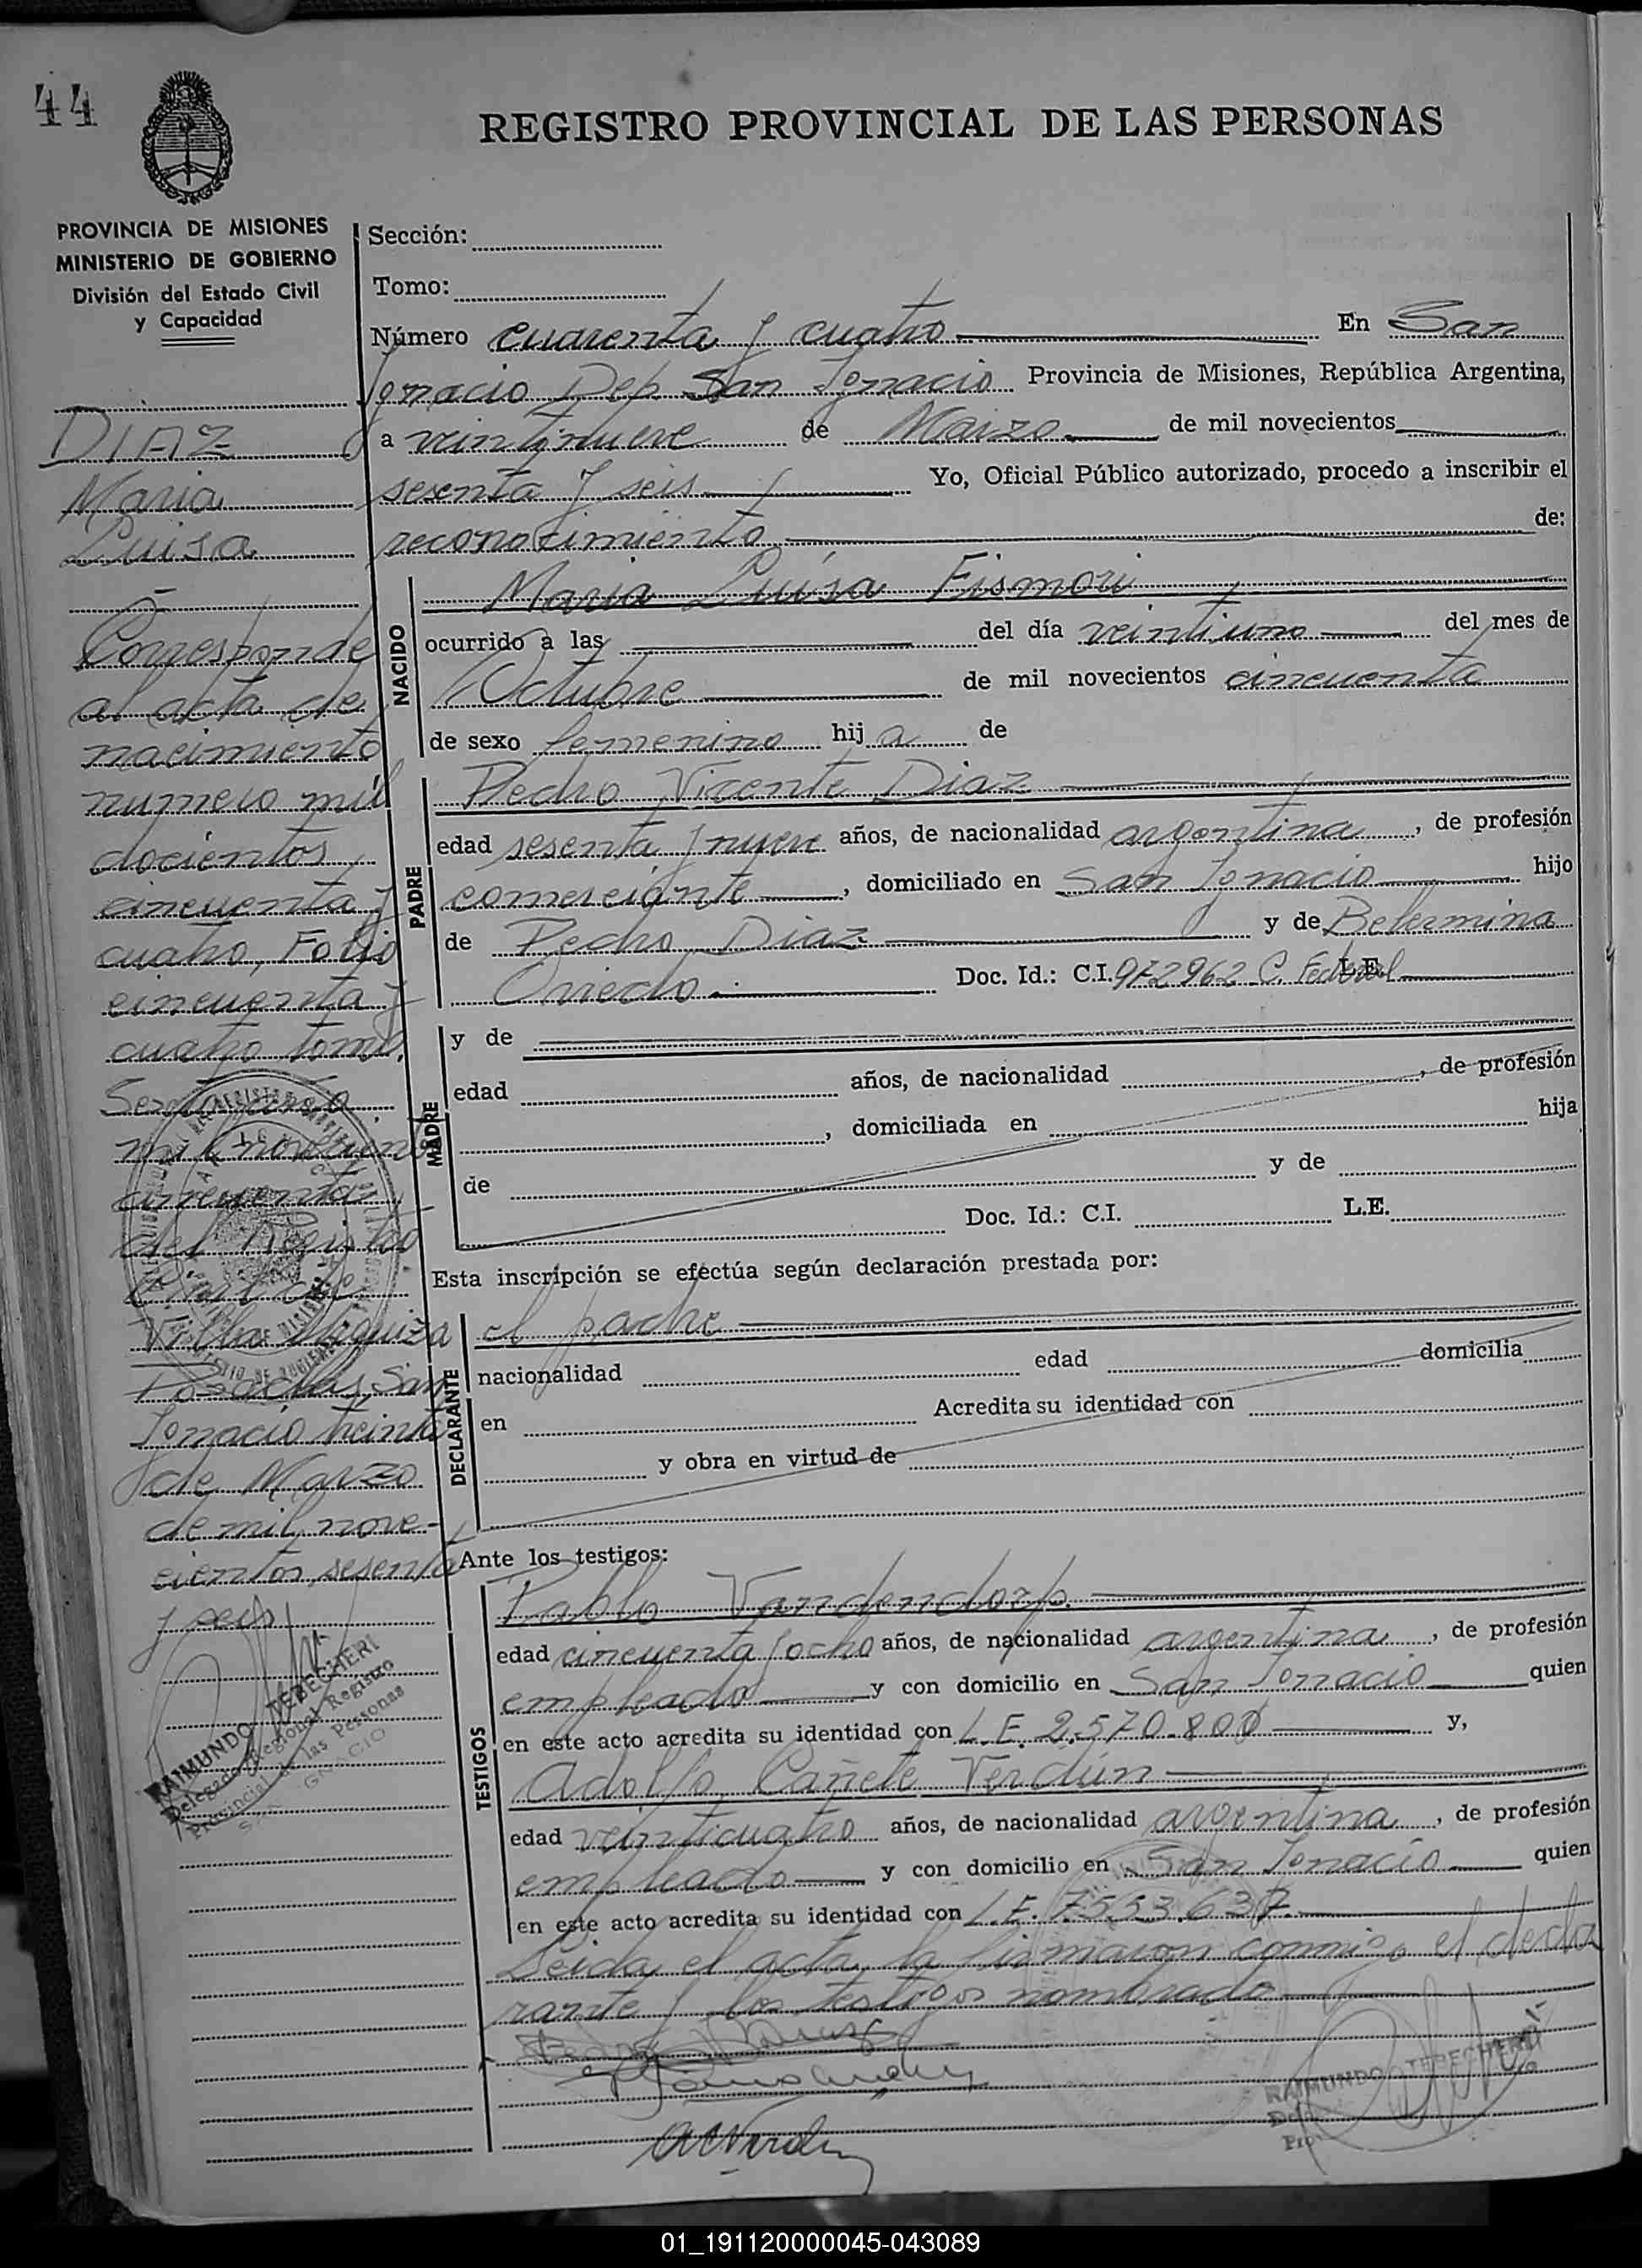 44
REGISTRO PROVINCIAL DE LAS PERSONAS
PROVINCIA DE MISIONES
MINISTERIO DE GOBIERNO
División del Estado Civil
y Capacidad
DIAZ
Maria
Luisa
Corresponde
al acta de
nacimiento
numero mil
docientos
cincuenta y
cuatro, Folio
cincuenta y
cuatro tomo
mil novecientos
cincuenta
del Registro
Civil de
Villa Urquiza
Posadas, San
Ignacio treinta
de Marzo
de mil nove-
cientos sesenta
y seis
RAIMUNDO TEBECHERI
Delegado Regional Registro
Provincial de las Personas
SAN IGNACIO
Sección:
Tomo:
Número cuarenta y cuatro En San
Ignacio Dep. San Ignacio Provincia de Misiones, República Argentina,
a veintinueve de Marzo de mil novecientos
sesenta y seis Yo, Oficial Público autorizado, procedo a inscribir el
reconocimiento de:
NACIDO
Maria Luisa Fismori
ocurrido a las del día veintiuno del mes de
Octubre de mil novecientos cincuenta
de sexo femenino hija de
PADRE
Pedro Vicente Diaz
edad sesenta y nueve años, de nacionalidad argentina, de profesión
comerciante, domiciliado en San Ignacio hijo
de Pedro Diaz y de Belermina
Oviedo Doc. Id.: C.I. 972962 C. Federal L.E.
MADRE
y de
edad años, de nacionalidad , de profesión
, domiciliada en hija
de y de
Doc. Id.: C.I. L.E.
Esta inscripción se efectúa según declaración prestada por:
DECLARANTE
el padre
nacionalidad edad domicilia
en Acredita su identidad con
y obra en virtud de
Ante los testigos:
TESTIGOS
Pablo Vandendorp
edad cincuenta y ocho años, de nacionalidad argentina, de profesión
empleado y con domicilio en San Ignacio quien
en este acto acredita su identidad con L.E. 2.570.800 y,
Adolfo Cañete Verdún
edad veinticuatro años, de nacionalidad argentina, de profesión
empleado y con domicilio en San Ignacio quien
en este acto acredita su identidad con L.E. 7553.637.
Leida el acta, la firmaron conmigo el decla
rante y los testigos nombrado
RAIMUNDO TEBECHERI
01_191120000045-043089